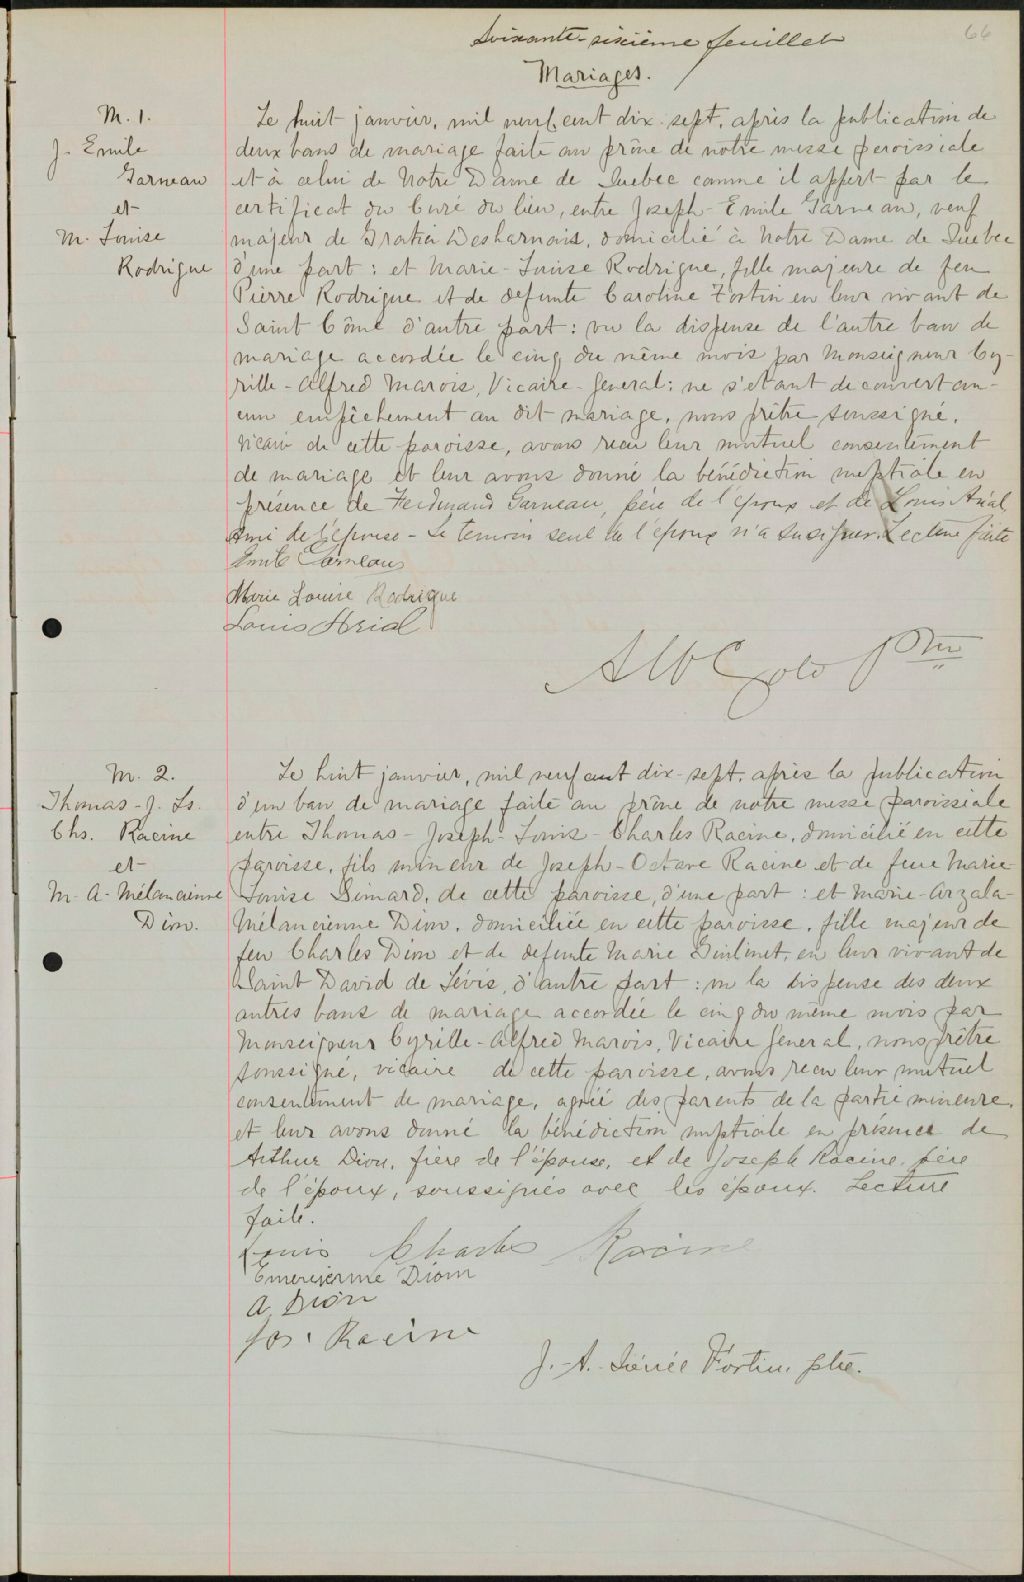 Soixante-sixième feuillet
66
Mariages.
M. 1.
J. Emile
Garneau
et
M. Louise
Rodrigue
Le huit janvier, mil neuf cent dix-sept, après la publication de
deux bans de mariage faite au prône de notre messe paroissiale
et à celui de Notre Dame de Quebec comme il appert par le
certificat du Curé du lieu, entre Joseph-Emile Garneau, veuf
majeur de Gratia Desharnais, domicilié à Notre Dame de Quebec
d'une part : et Marie-Louise Rodrigue, fille majeure de feu
Pierre Rodrigue et de defunte Caroline Fortin en leur vivant de
Saint Côme d'autre part : vu la dispense de l'autre ban de
mariage accordée le cinq du même mois par Monseigneur Cy-
rille-Alfred Marois, Vicaire-General : ne s'étant decouvert au-
cun empêchement au dit mariage, nous prêtre soussigné,
vicaire de cette paroisse, avons recu leur mutuel consentement
de mariage et leur avons donné la bénédiction nuptiale en
présence de Ferdinand Garneau, père de l'époux et de Louis
Ami de l'épouse - Le temoin seul de l'époux n'a su signer. Lecture faite
Emile Garneau
Marie Louise Rodrigue
Louis
Ptre
M. 2.
Thomas-J. Ls.
Chs. Racine
et
M. A-Mélancienne
Dion.
Le huit janvier, mil neuf cent dix-sept, après la publication
d'un ban de mariage faite au prône de notre messe paroissiale
entre Thomas-Joseph-Louis-Charles Racine, domicilié en cette
paroisse, fils mineur de Joseph-Octave Racine et de feue Marie-
Louise Simard, de cette paroisse, d'une part : et Marie-Arzala-
Mélancienne Dion, domiciliée en cette paroisse, fille majeur de
feu Charles Dion et de defunte Marie en leur vivant de
Saint David de Lévis, d'autre part : vu la dispense des deux
autres bans de mariage accordée le cinq du même mois par
Monseigneur Cyrille-Alfred Marois, Vicaire General, nous prêtre
soussigné, vicaire de cette paroisse, avons recu leur mutuel
consentement de mariage, agréé des parents de la partie mineure,
et leur avons donné la bénédiction nuptiale en présence de
Arthur Dion, frère de l'épouse, et de Joseph Racine, père
de l'époux, soussignés avec les époux. Lecture
faite.
Louis Charles Racine
Dion
A Dion
Jos. Racine
J.-A.-Irénée Fortin, ptre.